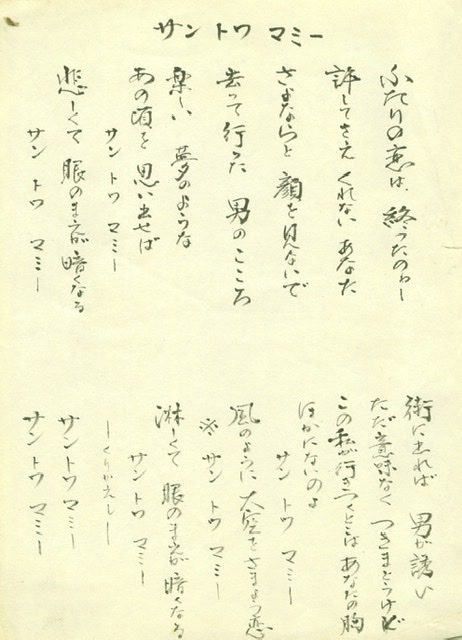 サン トワ マミー
ふたりの恋は、終ったのねー
許してさえ くれない あなた
さよならと 顔を見ないで
去って行った 男のこころ
楽しい 夢のような
あの頃を 思い出せば
サン トワ マミー
悲しくて 眼のまえが 暗くなる
サン トワ マミー
街に出れば 男が誘い
ただ意味なく つきまとうけど
この私が行きつくとこは あなたの胸
ほかにないのよ
サン トワ マミー
風のように 大空をさまよう恋
※ サン トワ マミー
淋しくて 眼のまえが 暗くなる
サン トワ マミー
ーくりかえしー
サン トワ マミー
サン トワ マミー